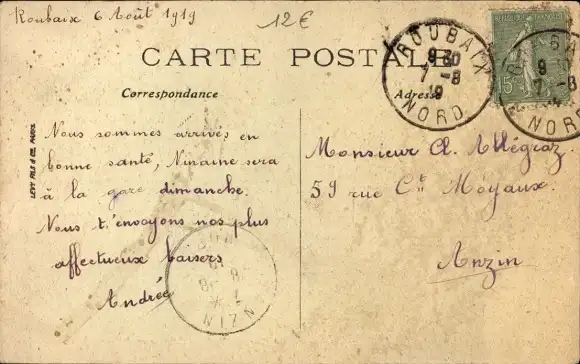 Roubaix 6 Août 1919
12€
CARTE POSTALE
Correspondance
Adresse
ROUBAIX
9 30
7 - 8
19
NORD
15c
9 30
7 - 8
NORD
LEVY FILS & CIE, PARIS
Nous sommes arrivés en
bonne santé, Ninaine sera
à la gare dimanche.
Nous t'envoyons nos plus
affectueux baisers
Andrée
Monsieur A. Allégraz
59 rue Cte Moyaux.
Anzin